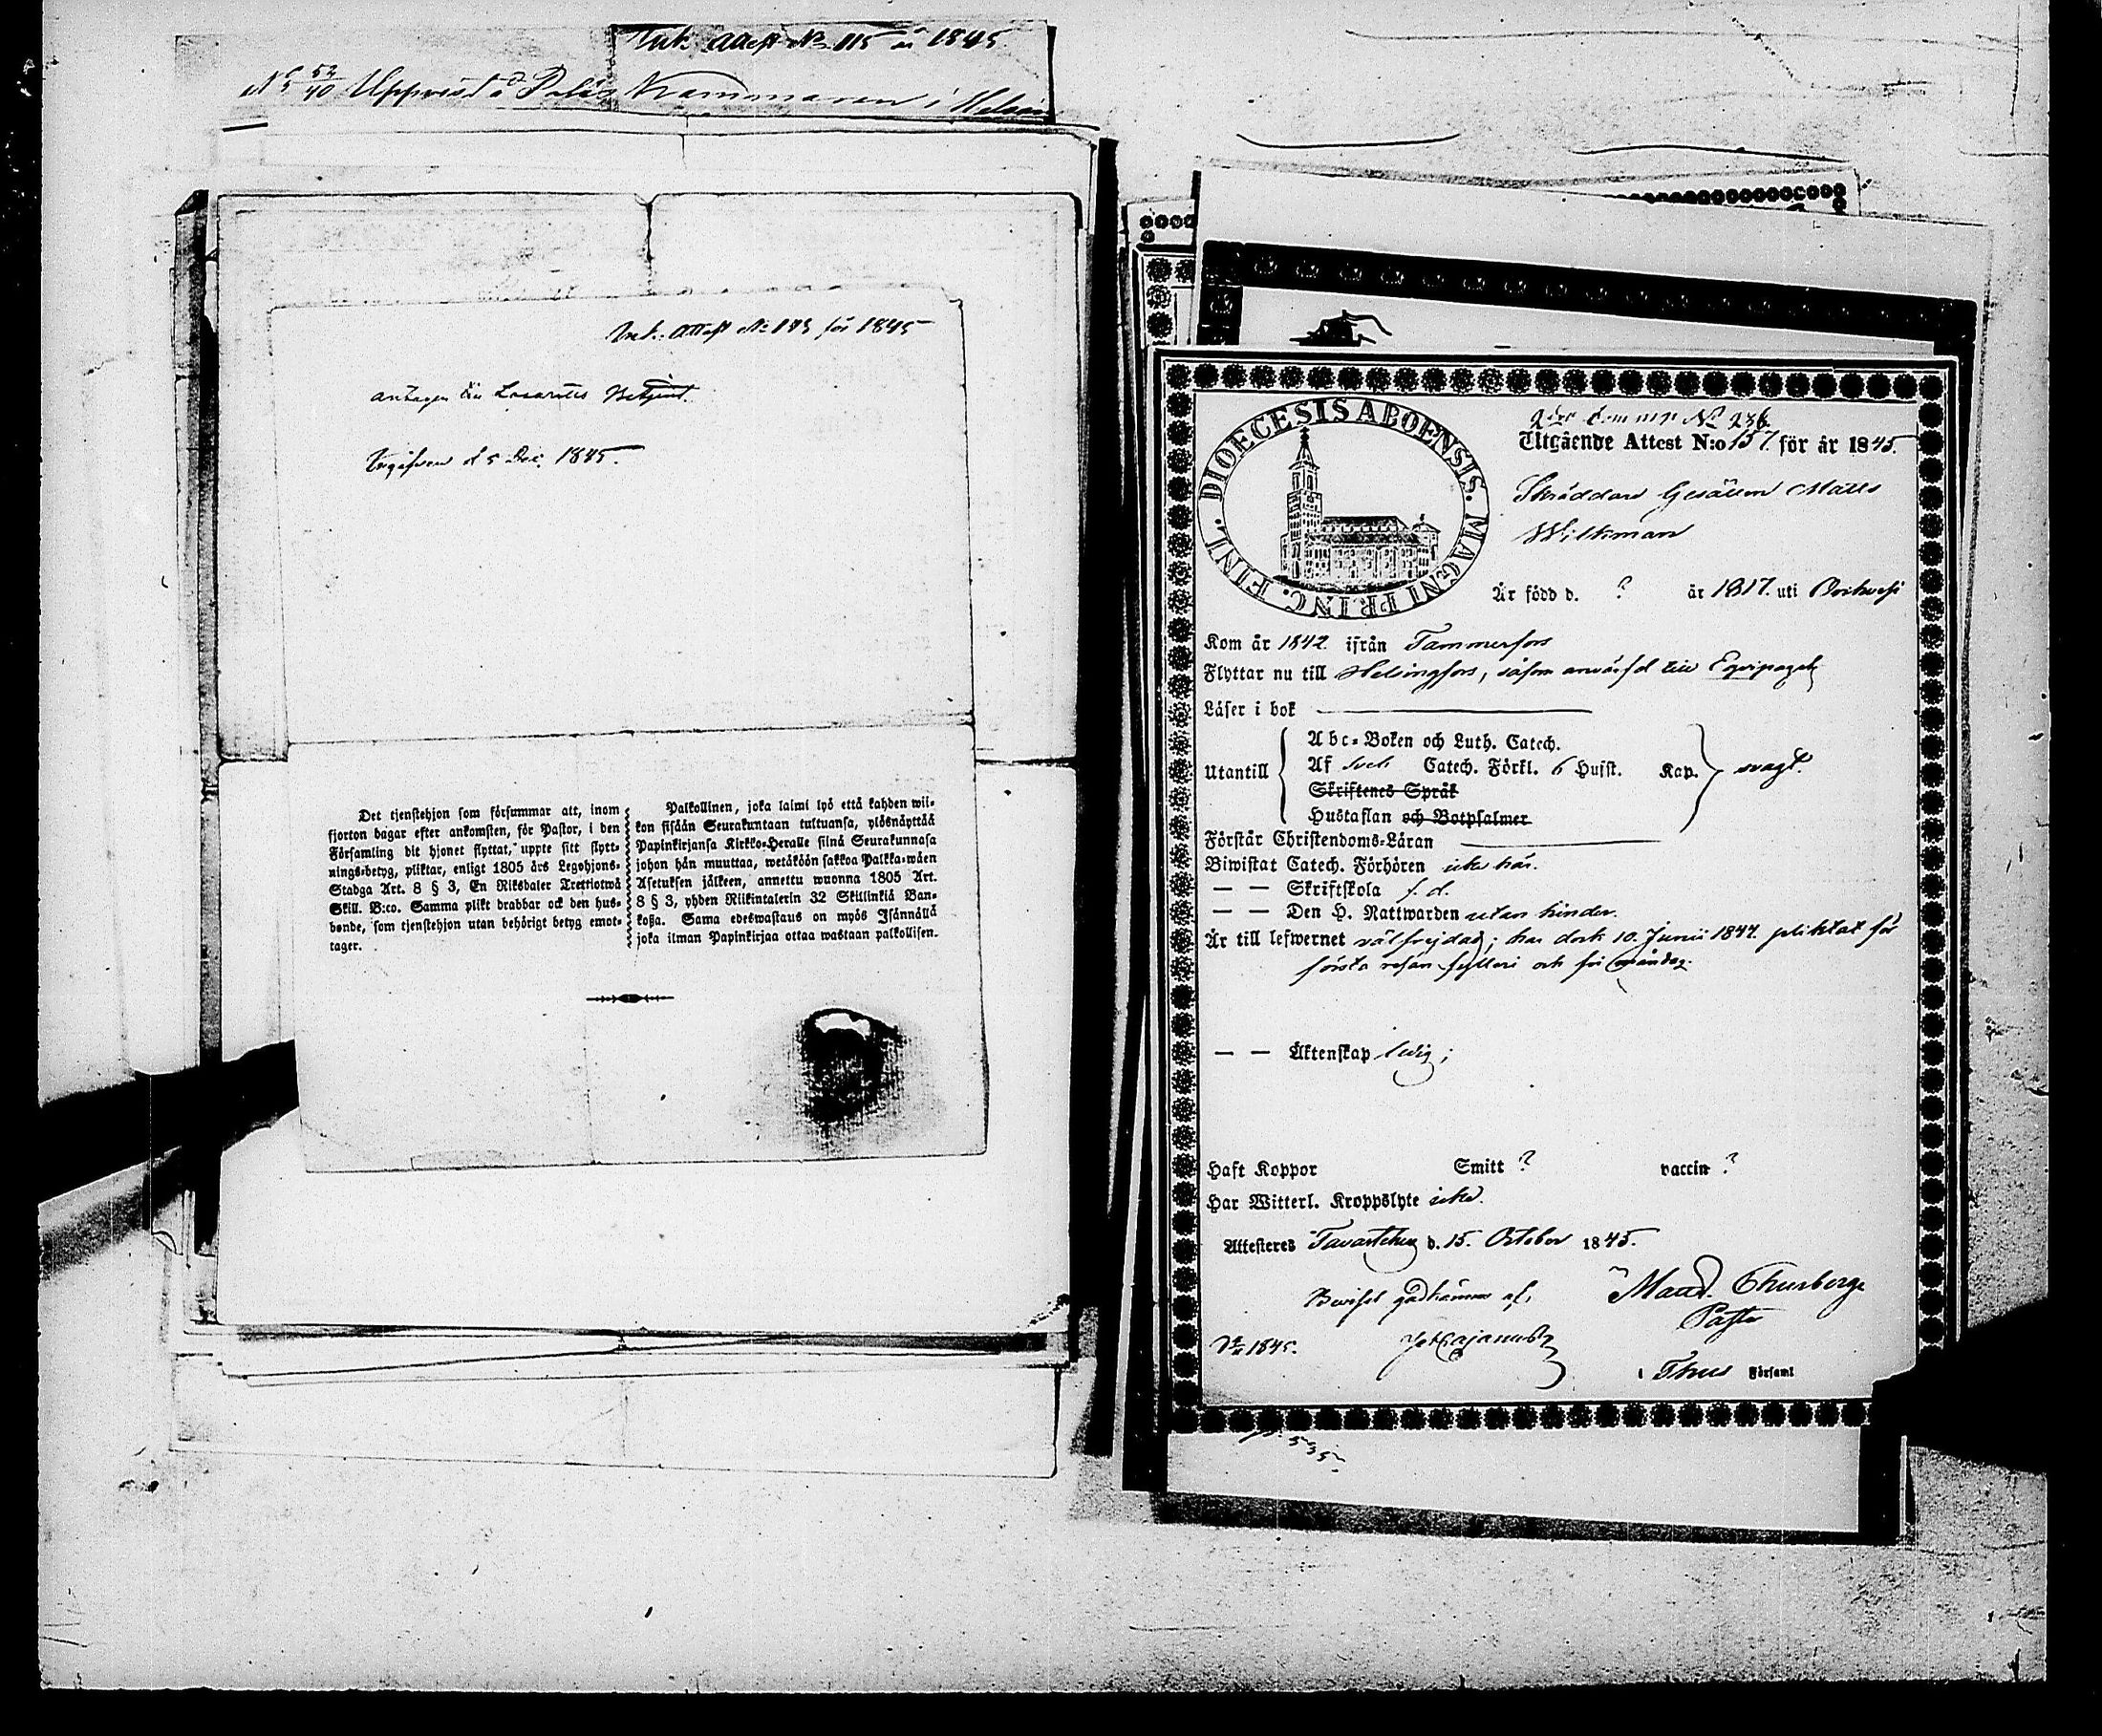 Ink. Attest No 115 år 1845.
No 52/40 Uppvist å Polis Kammaren i Helsin
Ink. Attest No 173 för 1845
antagen till Lasaretts Betjent.
Ingifven d 5 Dec. 1845.
Det tjenstehjon som försummar att, inom
fjorton dagar efter ankomsten, för Pastor, i den
Församling dit hjonet flyttat, uppte sitt flytt-
nings-betyg, pliktar, enligt 1805 års Legohjons-
Stadga Art. 8 § 3, En Riksdaler Trettiotwå
Skill. B:co. Samma plikt drabbar ock den hus-
bonde, som tjenstehjon utan behörigt betyg emot-
tager.
Palkollinen, joka laimi lyö että kahden wii-
kon sisään Seurakuntaan tultuansa, ylösnäyttää
Papinkirjansa Kirkko-Heralle siinä Seurakunnasa
johon hän muuttaa, wetäköön sakkoa Palkka-wäen
Asetuksen jälkeen, annettu wuonna 1805 Art.
8 § 3, yhden Riikintalerin 32 Skillinkiä Ban-
kossa. Sama edeswastaus on myös Isännällä
joka ilman Papinkirjaa ottaa wastaan palkollisen.
DIOECESIS ABOENSIS. MAGNI PRINC. FINL.
No 236
Utgående Attest N:o 157. för år 1845.
Skräddare Gesällen Matts
Wilkman
Är född d. ? år 1817. uti
Kom år 1842. ifrån Tammerfors
Flyttar nu till Helsingfors, såsom anvärfd till Equipaget
Läser i bok
Utantill
Abc-Boken och Luth. Catech.
Af Sveb Catech. Förkl. 6 Hufst. Kap. svagt.
Skriftenes Språk
Hustaflan och Botpsalmer
Förstår Christendoms-Läran
Biwistat Catech. Förhören icke här.
— — Skriftskola f. d.
— — Den H. Nattwarden utan hinder.
Är till lefwernet välfrejdad; har dock 10. Junii 1844. pliktat för
första resan fylleri och för
— — Äktenskap ledig;
Haft Koppor Smitt ? vaccin ?
Har Witterl. Kroppslyte icke.
Attesteres Tavastehus d. 15. October 1845.
Beviset godkännes af,
Thurberg
Past
1845. Cajanus
i Thus Församl